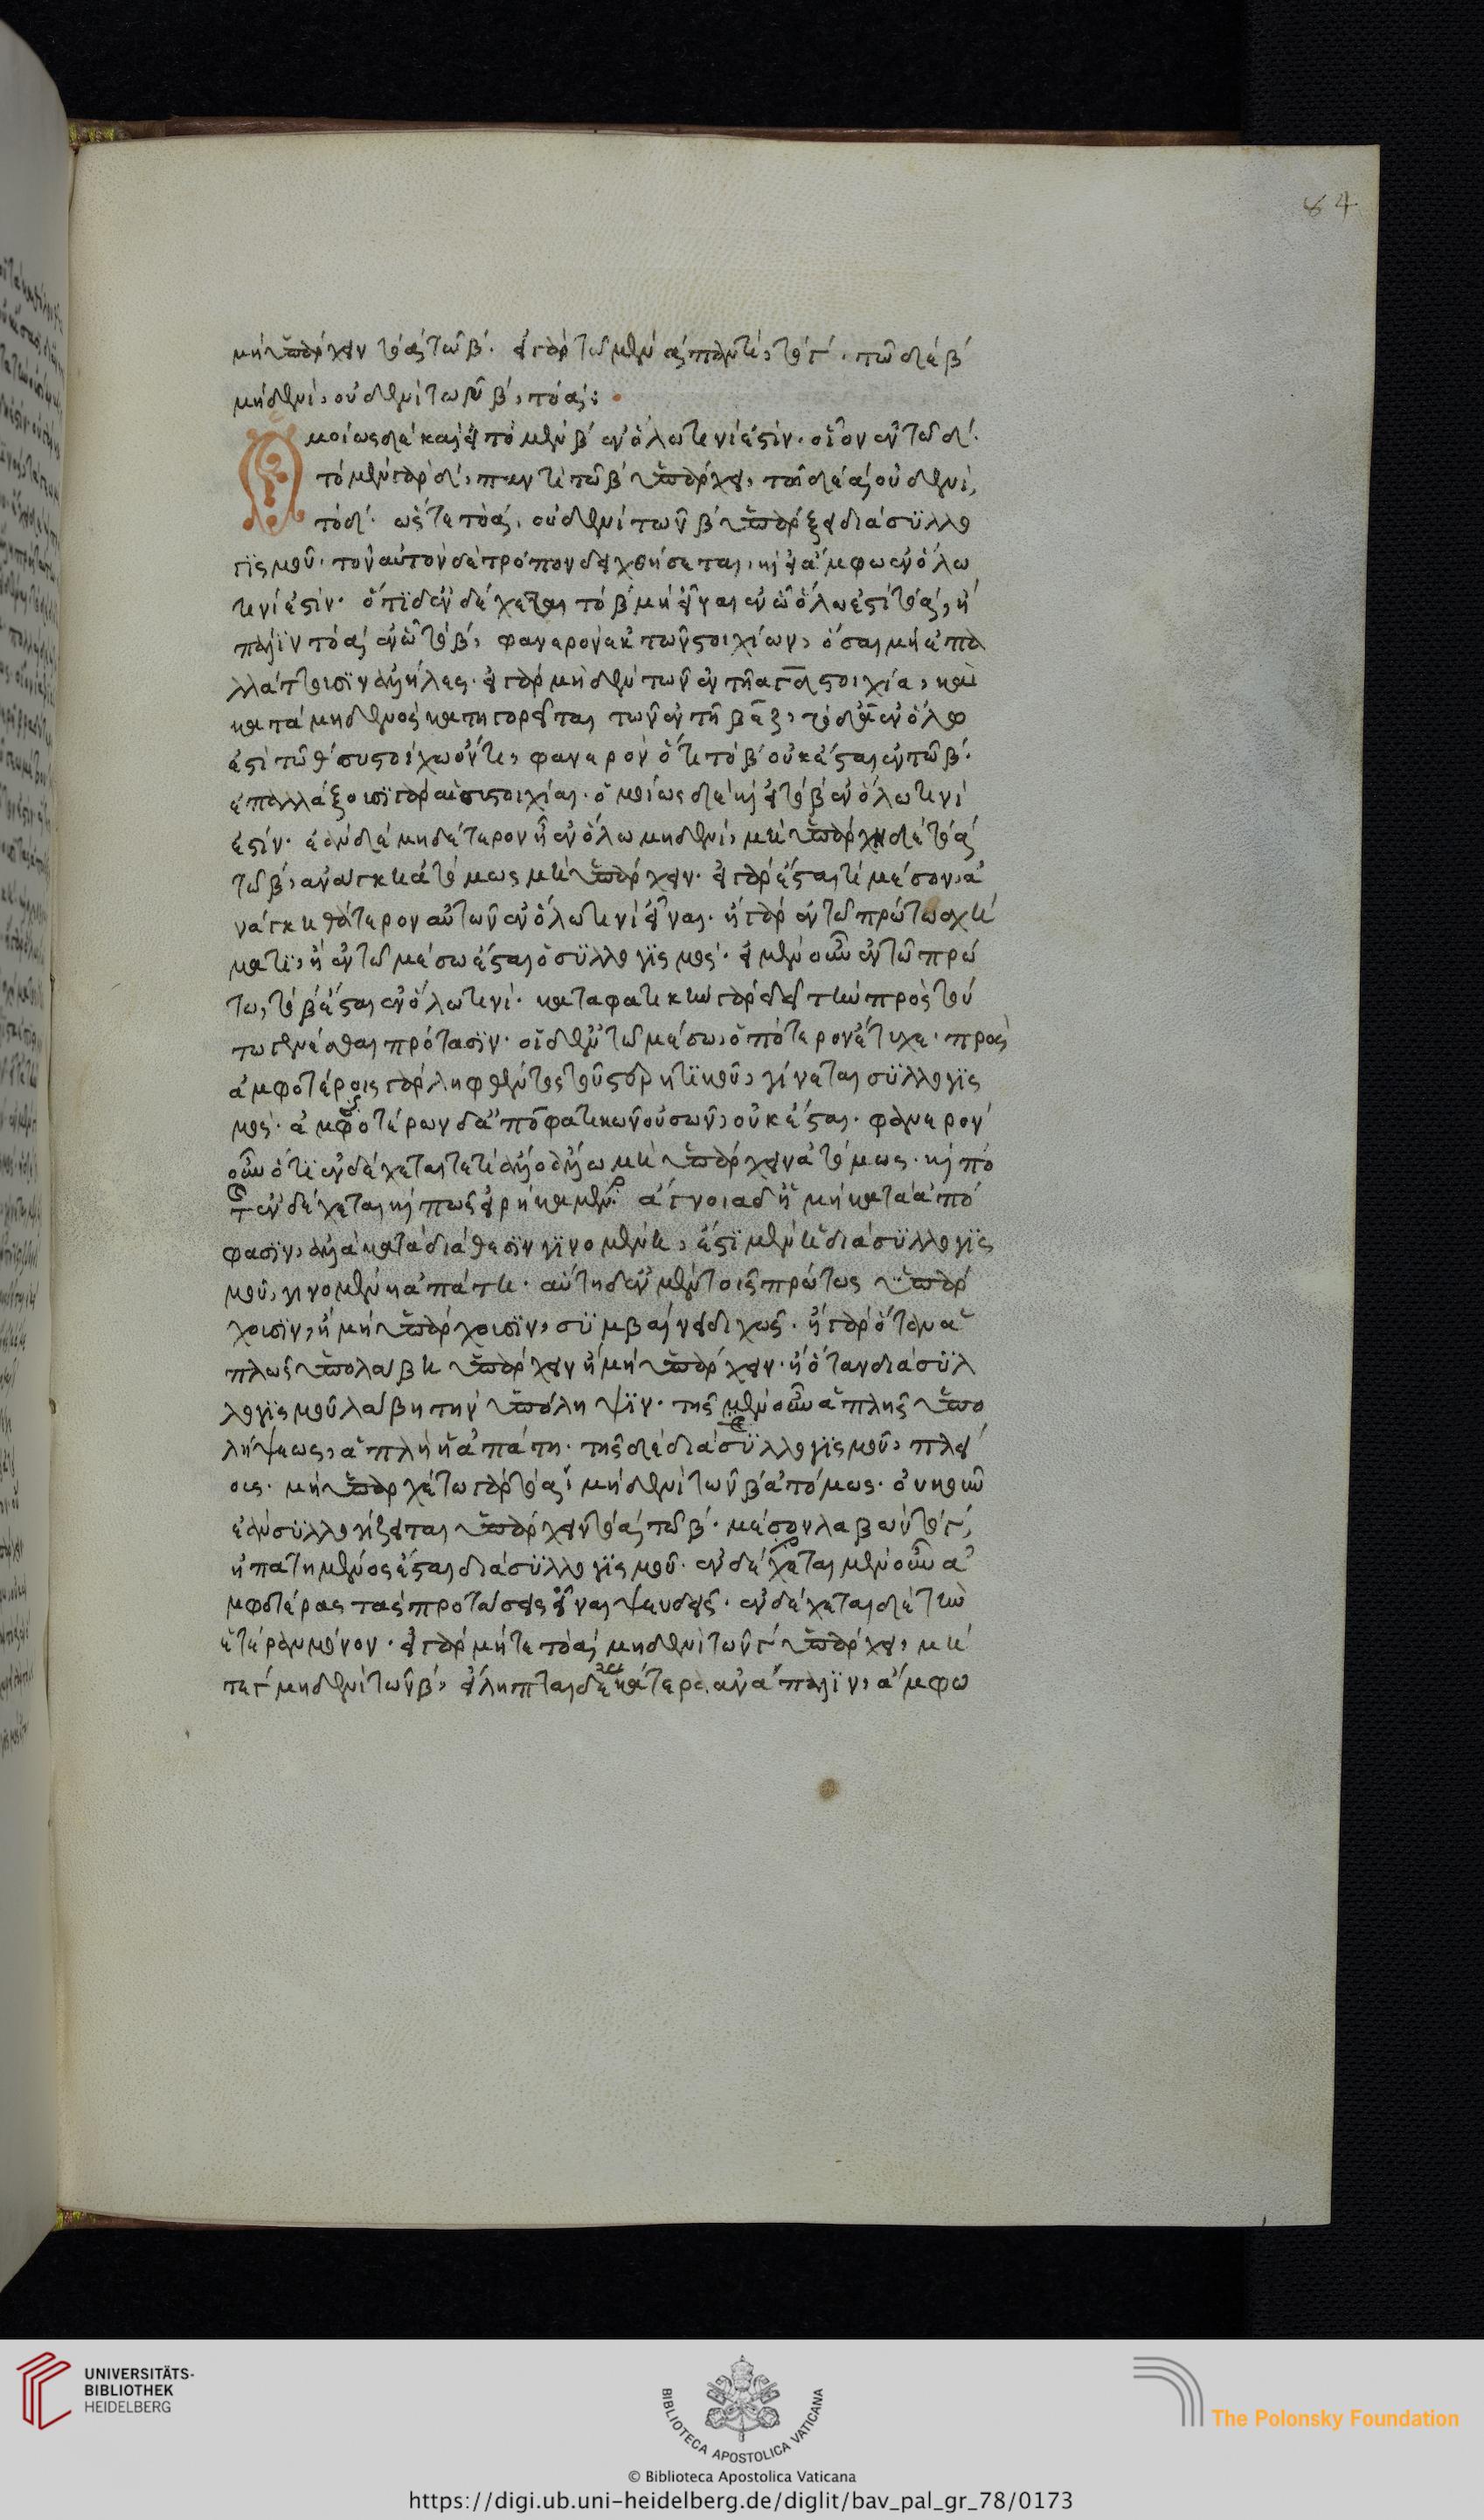 μὴ ὑπάρχειν τὸ α τῶ β· εἰ γὰρ τῶ μὲν α παντὶ, τὸ γ· τῶ δὲ β
μηδενὶ, οὐδενὶ τῶν β, τὸ α:
Ὁμοίως δὲ καὶ εἰ τὸ μὲν β ἐν ὅλω τινί ἐστιν· οἷον ἐν τῶ δ·
τὸ μὲν γὰρ δ, παντὶ τῶ β ὑπάρχει, τῶ δὲ α οὐδενὶ,
τὸ δ· ὥστε τὸ α, οὐδενὶ τῶν β ὑπάρξει διὰ συλλο
γισμοῦ· τὸν αὐτὸν δὲ τρόπον δειχθήσεται, κ εἰ ἄμφω ἐν ὅλω
τινί ἐστιν· ὅτι δ' ἐνδέχεται τὸ β μὴ εἶναι ἐν ὧ ὅλω ἐστὶ τὸ α, ἢ
πάλιν τὸ α ἐν ὧ τὸ β, φανερὸν ἐκ τῶν στοιχίων, ὅσαι μὴ ἐπα
λλάττουσιν ἀλλήλαις· εἰ γὰρ μηδὲν τῶν ἐν τῆ αγδ στοιχία, κατὰ
κατὰ μηδενὸς κατηγορεῖται τῶν ἐν τῆ βεζ, τὸ δ' α ἐν ὅλω
ἐστὶ τῶ θ συστοίχω ὄντι, φανερὸν ὅτι τὸ β οὐκ ἔσται ἐν τῶ β·
ἐπαλλάξουσι γὰρ αἱ συστοιχίαι· ὁμοίως δὲ κ εἰ τὸ β ἐν ὅλω τινί
ἐστιν· ἐὰν δὲ μηδέτερον ἦ ἐν ὅλω μηδενὶ, μὴ ὑπάρχη δὲ τὸ α
τῶ β, ἀνάγκη ἀτόμως μὴ ὑπάρχειν· εἰ γὰρ ἔσται τι μέσον, ἀ
νάγκη θάτερον αὐτῶν ἐν ὅλω τινὶ εἶναι· ἢ γὰρ ἐν τῶ πρώτω σχή
ματι, ἢ ἐν τῶ μέσω ἔσται ὁ συλλογισμός· εἰ μὲν οὖν ἐν τῶ πρώ
τω, τὸ β ἔσται ἐν ὅλω τινί· καταφατικὴν γὰρ δεῖ τὴν πρὸς τού
τω γενέσθαι πρότασιν· εἰ δ' ἐν τῶ μέσω, ὁπότερον ἔτυχε· πρὸς
ἀμφοτέροις γὰρ ληφθέντος τοῦ στερητικοῦ, γίνεται συλλογισ
μός· ἀμφοτέρων δ' ἀποφατικῶν οὐσῶν, οὐκ ἔσται· φανερὸν
οὖν ὅτι ἐνδέχεταί τε τὶ ἄλλο ἄλλω μὴ ὑπάρχειν ἀτόμως· κ πό
τ' ἐνδέχεται κ πῶς εἰρήκαμεν· ἄγνοια δ' ἡ μὴ κατὰ ἀπό
φασιν, ἀλλὰ κατὰ διάθεσιν γινομένη, ἐστὶ μὲν ἡ διὰ συλλογισ
μοῦ, γινομένη ἀπάτη· αὕτη δ' ἐν μὲν τοῖς πρώτως ὑπάρ
χουσιν, ἢ μὴ ὑπάρχουσιν, συμβαίνει διχῶς· ἢ γὰρ ὅταν ἁ
πλῶς ὑπολάβη ὑπάρχειν ἢ μὴ ὑπάρχειν· ἢ ὅταν διὰ συλ
λογισμοῦ λάβη τὴν ὑπόληψιν· τῆς μὲν οὖν ἁπλῆς ὑπο
λήψεως, ἁπλῆ ἡ ἀπάτη· τῆς δὲ διὰ συλλογισμοῦ, πλεί
ους· μὴ ὑπαρχέτω γὰρ τὸ α μηδενὶ τῶν β ἀτόμως· οὐκοῦν
ἐὰν συλλογίζηται ὑπάρχειν τὸ α τῶ β· μέσον λαβὼν τὸ γ,
ἠπατημένος ἔσται διὰ συλλογισμοῦ· ἐνδέχεται μὲν οὖν ἀ
μφοτέρας τὰς προτάσεις εἶναι ψευδεῖς· ἐνδέχεται δὲ τὴν
ἑτέραν μόνον· εἰ γὰρ μήτε τὸ α μηδενὶ τῶν γ ὑπάρχει, μή
τε γ μηδενὶ τῶν β, εἴληπται δὲ κατέρα ἀνάπαλιν, ἄμφω
84
UNIVERSITÄTS-
BIBLIOTHEK
HEIDELBERG
BIBLIOTECA APOSTOLICA VATICANA
The Polonsky Foundation
© Biblioteca Apostolica Vaticana
https://digi.ub.uni-heidelberg.de/diglit/bav_pal_gr_78/0173